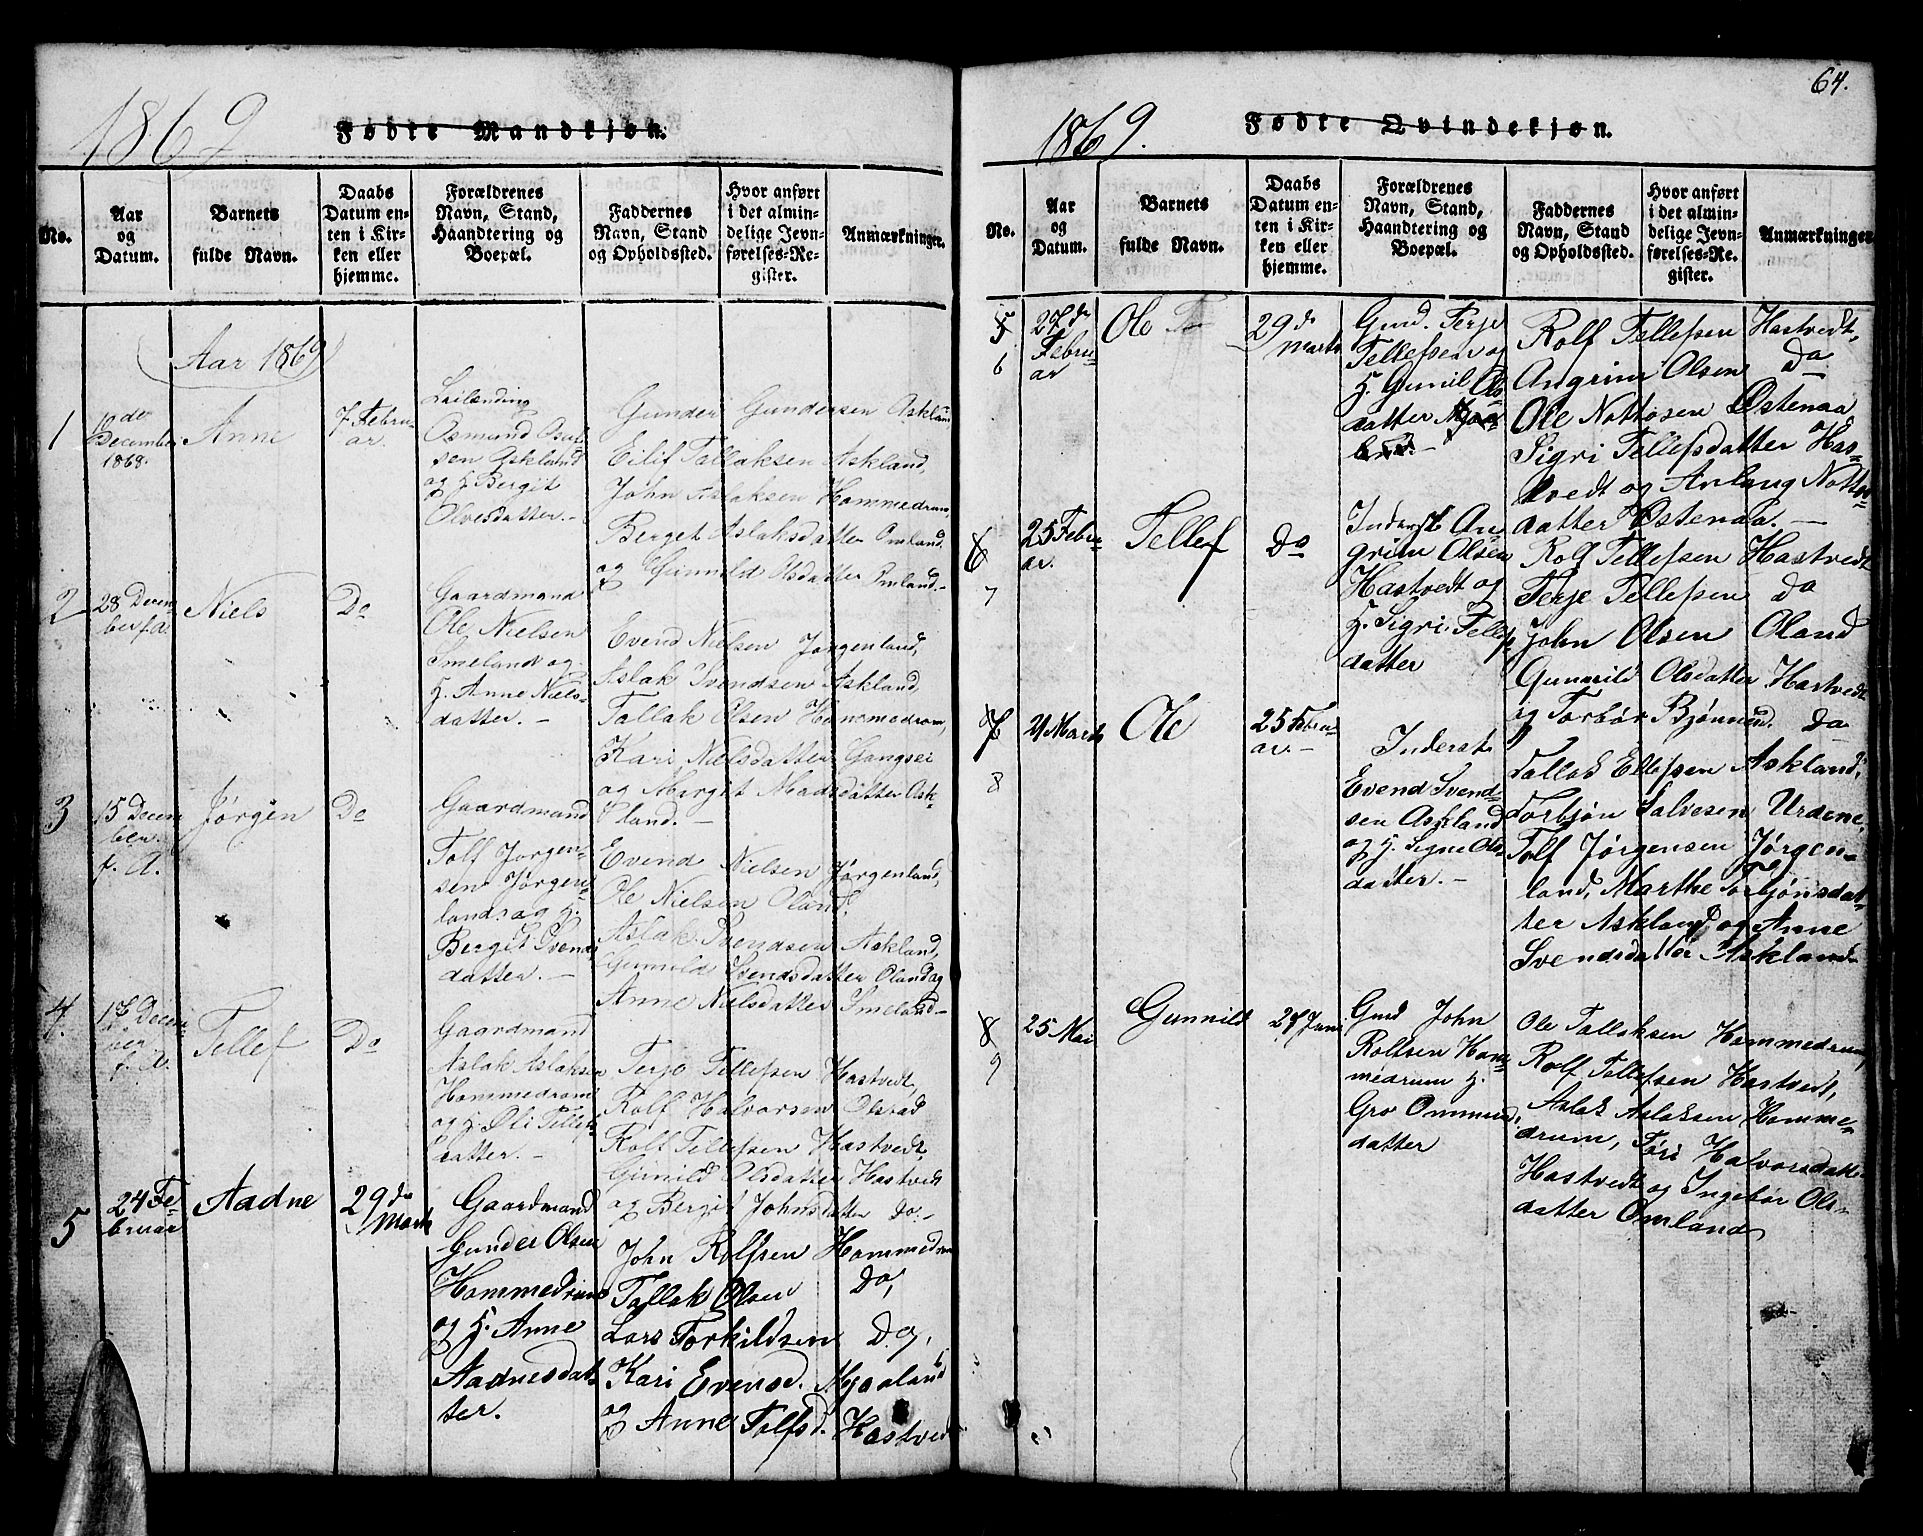 1869
Fødte Mandkjøn.
No.
Aar
og
Datum.
Barnets
fulde Navn.
Daabs
Datum en-
ten i Kir-
ken eller
hjemme.
Forældrenes
Navn, Stand,
Haandtering og
Boepæl.
Faddernes
Navn, Stand
og Opholdssted.
Hvor anført
i det almin-
delige Jevn-
førelses-Re-
gister.
Anmærkninger.
Aar 1869
1
December
1868.
Anne
7 Febru-
ar.
Leilænding
Osmund
sen Askland
og H. Bergit
Olvesdatter.-
Gunder Gundersen Askland
Eilif Tallaksen Askland,
John Aslaksen Hommedrum
Berget Aslaksdatter Omland.
og Gunnild Olsdatter Omland.-
2
28 Decem-
ber f. A.
Niels
Do
Gaardmand
Ole Nielsen
Smeland og
H. Anne Niels-
datter.-
Evend Nielsen Jørgenland,
Aslak Svendsen Askland,
Tallak Olsen Hommedrom,
Kari Nielsdatter Gangsei
og Margit Madsdatter Ask-
land.-
3
15 Decem
ber
f. A.
Jørgen
Do
Gaardmand
Tolf Jørgen-
sen Jørgen-
land og H.
Bergit Svends
datter.-
Evend Nielsen Jørgenland,
Ole Nielsen Oland,
Aslak Svendsen Askland,
Gunnild Svendsdatter Oland og
Anne Nielsdatter Smeland-
4
Decem-
ber
f. A.
Tellef
Do
Gaardmand
Aslak Aslaksen
Hommedrom
og H. Oli Tellefs
datter.-
Terje Tellefsen Hastvedt,
Rolf Halvorsen Olstad
Rolf Tellefsen Hastvedt,
Gunild Olsdatter Hastvedt
og Bergit Johnsdatter do.-
5
24 Fe-
bruar
Aadne
29de
Marts
Gaardmand
Gunder Olsen
Hommedrum
og H. Anne
Aadnesdat-
ter.
John Rolfsen Hommedrum
Tallak Olsen Do,
Lars Torkildsen Do,
Kari Evensd. Myaaland
og Anne Tolfsd. Hastvedt
64.
1869.
Fødte Qvindekjøn.
No.
Aar
og
Datum.
Barnets
fulde Navn.
Daabs
Datum en-
ten i Kir-
ken eller
hjemme.
Forældrenes
Navn, Stand,
Haandtering og
Boepæl.
Faddernes
Navn, Stand
og Opholdssted.
Hvor anført
i det almin-
delige Jevn-
førelses-Re-
gister.
Anmærkninger
5
6
27de
Febru-
ar
Ole
29de
Marts
Gmd. Terje
Tellefsen og
H. Gunil Ols
datter
Rolf Tellefsen Hastvedt,
Angrim Olsen do
Ole Nottosen Østenaa
Sigri Tellefsdatter Has-
tvedt og Anlaug Notto-
datter Østenaa.-
6
7
25 Febru-
ar.
Tellef
Do
Inderst An-
grim Olsen
Hastvedt og
H. Sigri Tellefs
datter
Rolf Tellefsen Hastvedt
Terje Tellefsen do
John Olsen Oland
Gunnild Olsdatter Hastvedt
og Torbør Bjønnsd. do
7
8
Marts
Ole
25 Febru-
ar.-
Inderst
Evend Svend-
sen Askland
og H. Signe Ols
datter.-
Tallak Ellefsen Askland,
Torbjøn Salvesen Urdene,
Tolf Jørgensen Jørgen-
land, Marthe Torbjønsdat-
ter Askland og Anne
Svendsdatter Askland
8
9
25 Mai
Gunnild
27 Juni
Gmd John
Rolfsen Hom
medrum H.
Gro Ommund
datter
Ole Tallaksen Hommedrum,
Rolf Tellefsen Hastvedt,
Aslak Aslaksen Homme-
drum, Tøri Halvorsdatter
Hastvedt og Ingebør Ols-
datter Omland